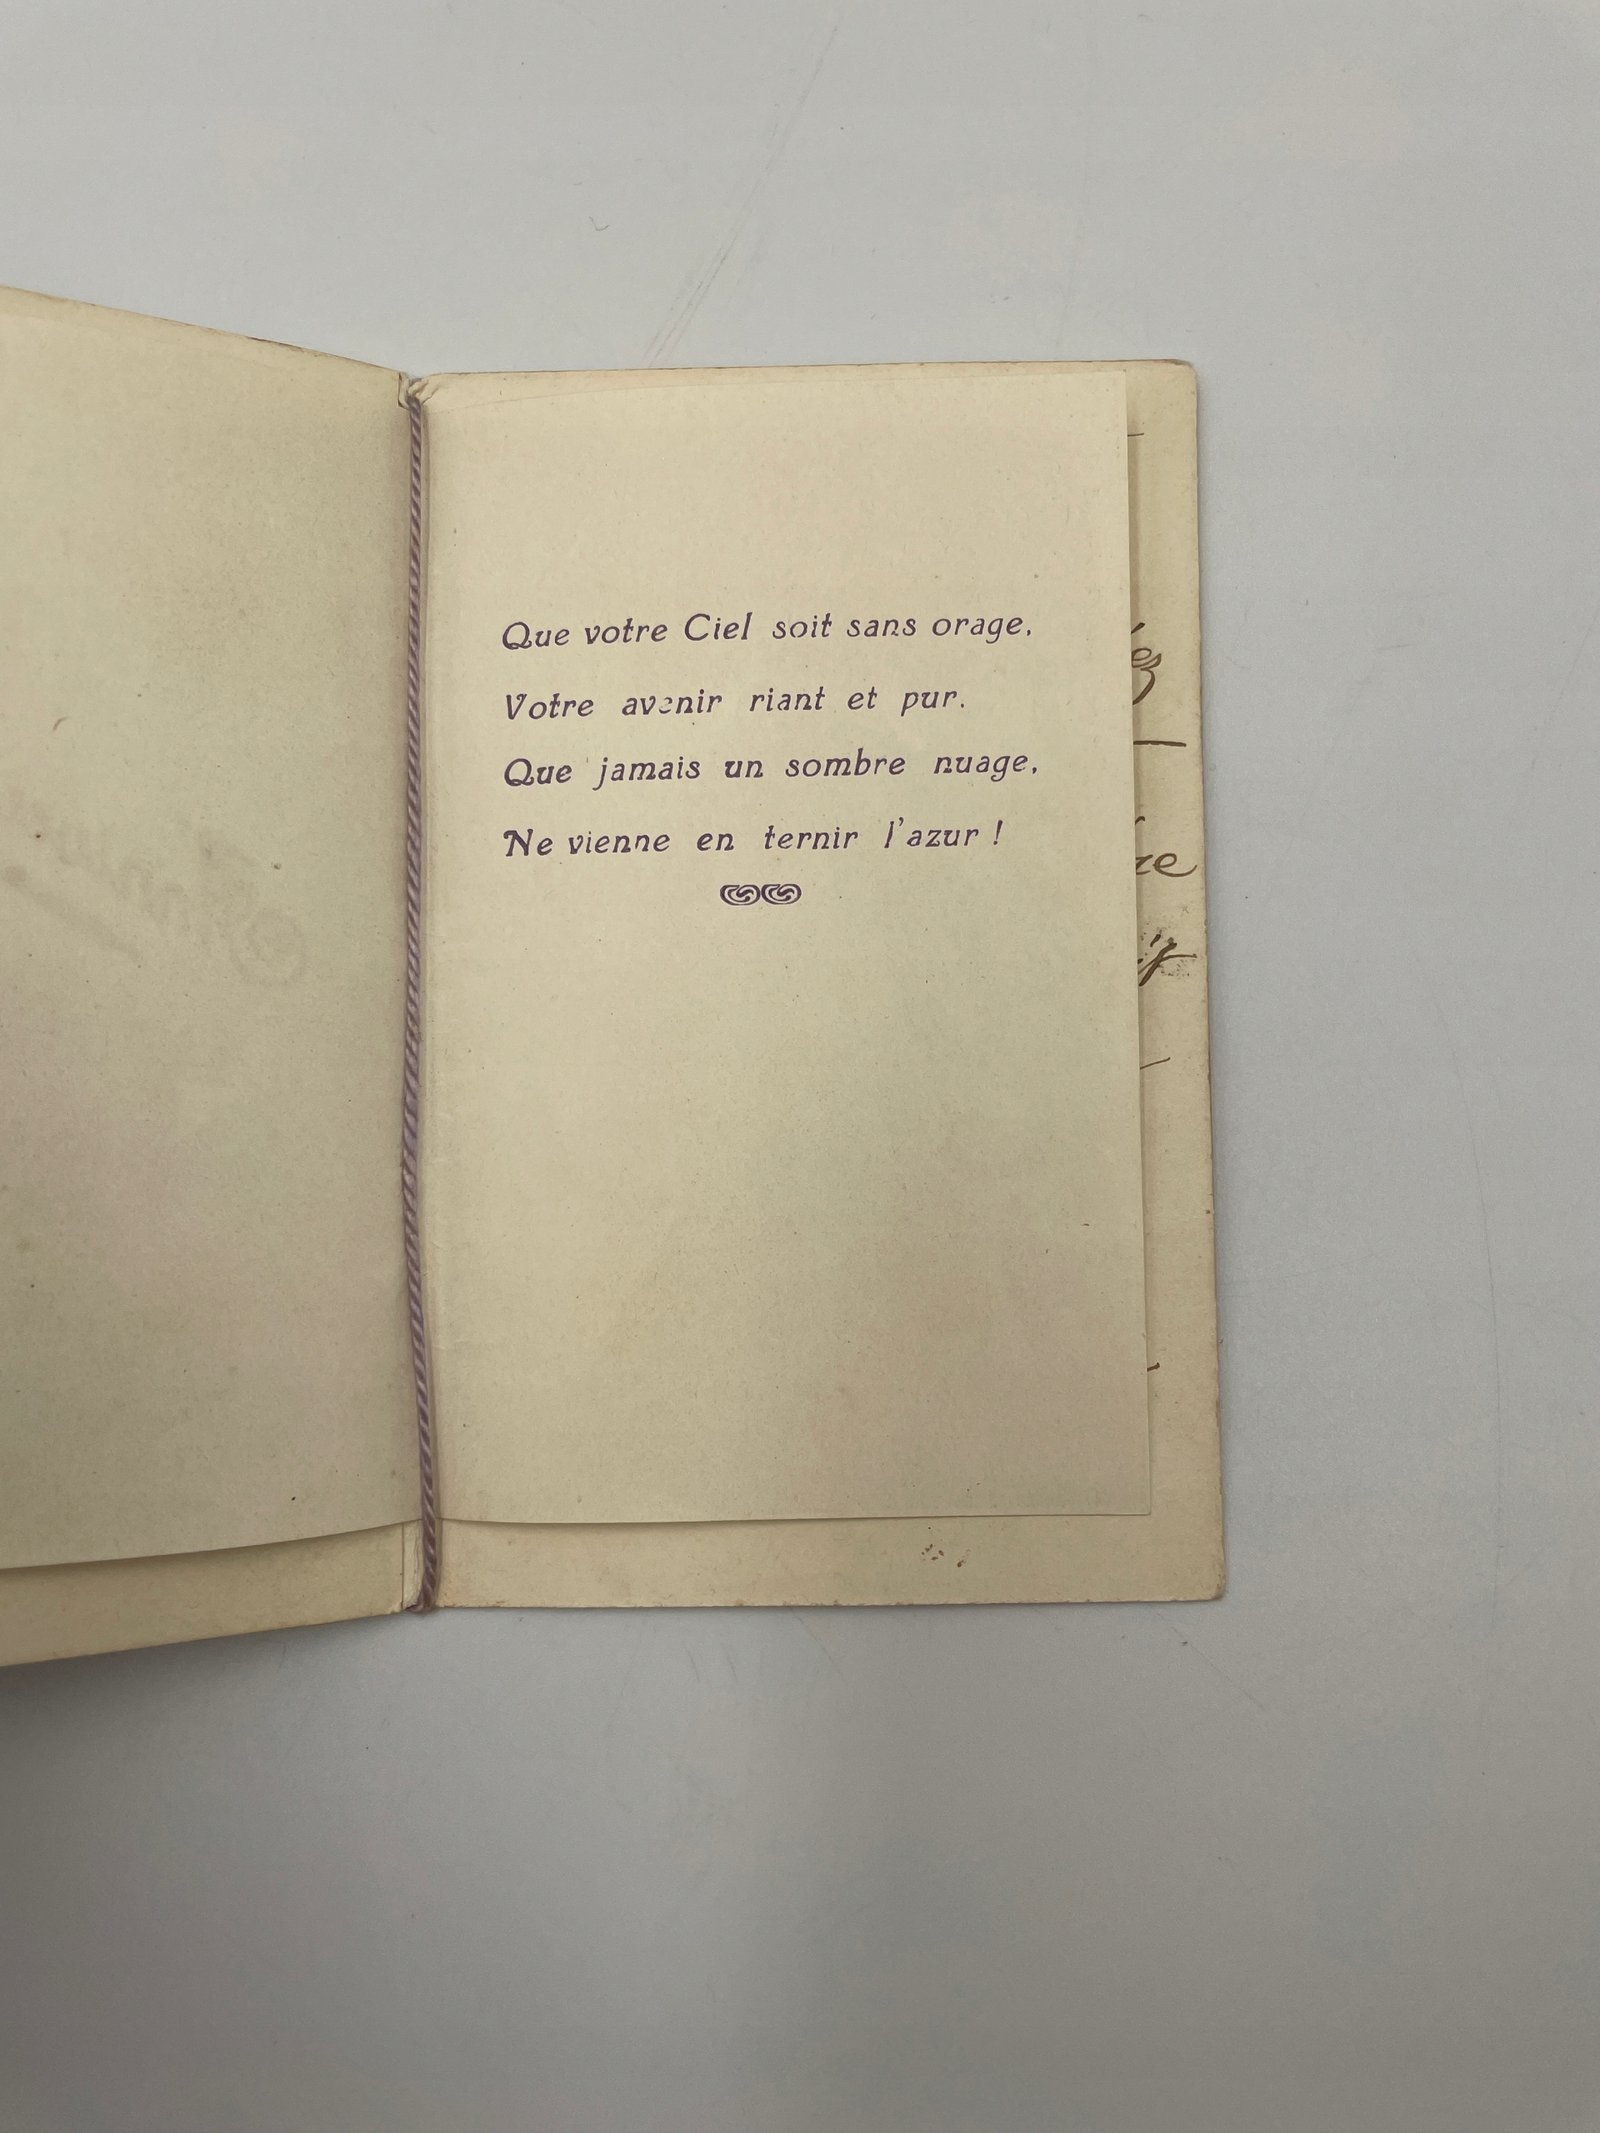 Que votre Ciel soit sans orage,
Votre avenir riant et pur.
Que jamais un sombre nuage,
Ne vienne en ternir l'azur !